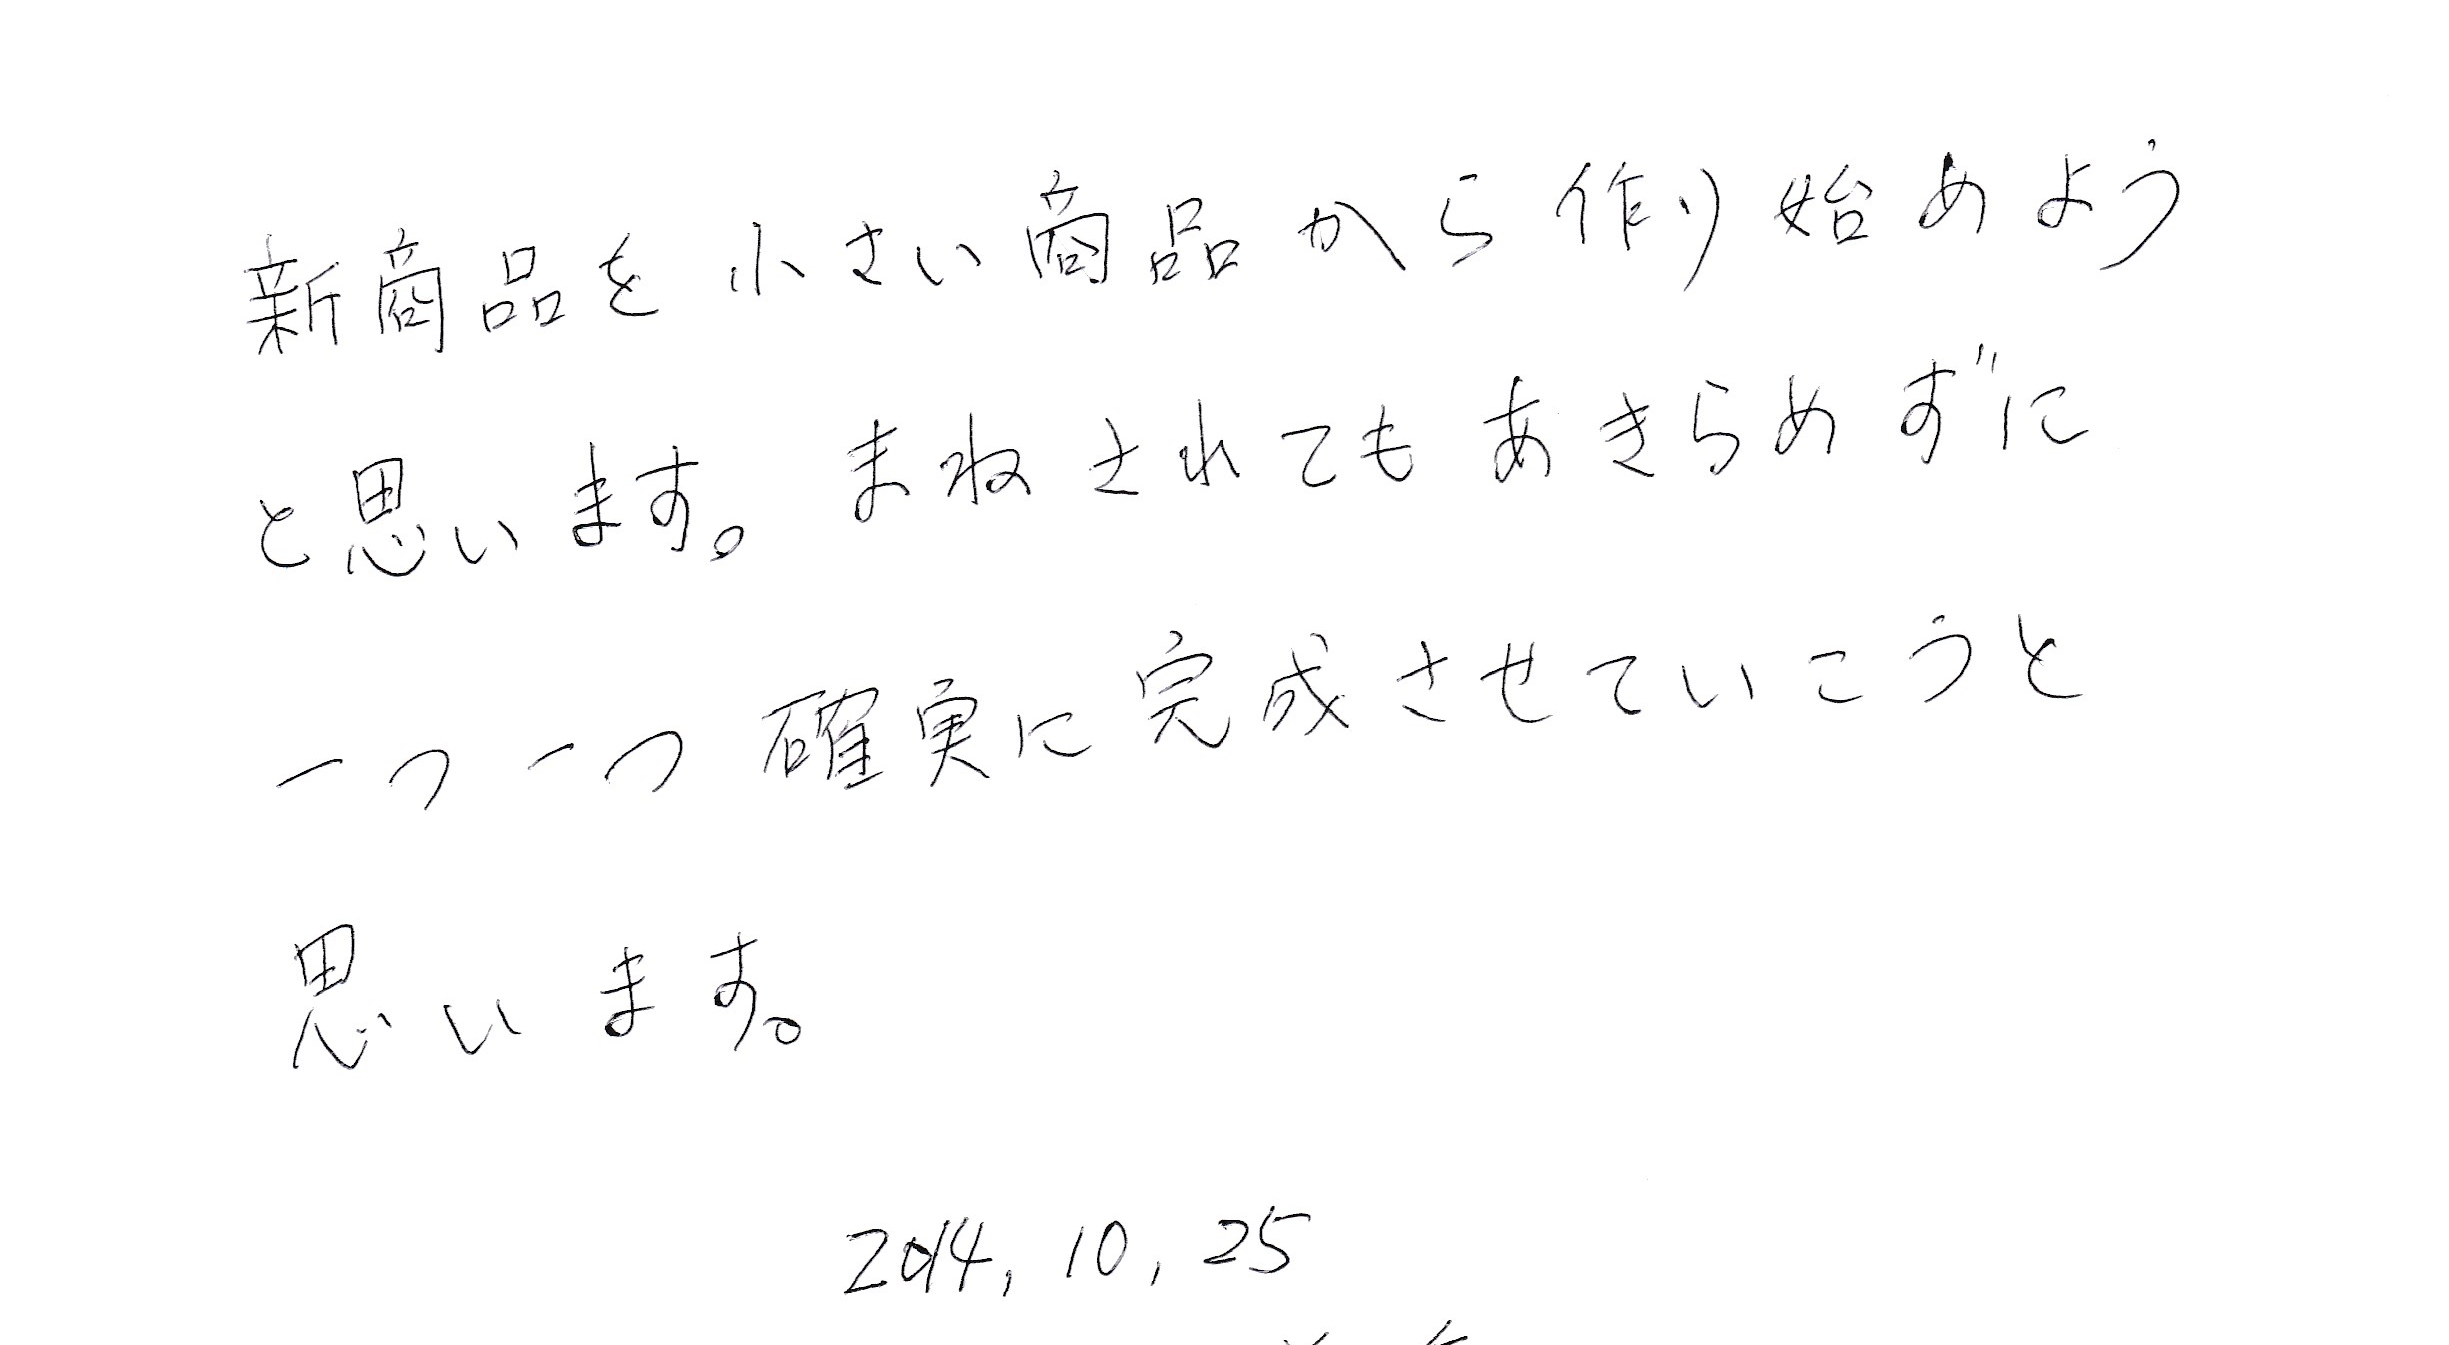 新商品を小さい商品から作り始めよう
と思います。まねされてもあきらめずに
一つ一つ確実に完成させていこうと
思います。
2014, 10, 25